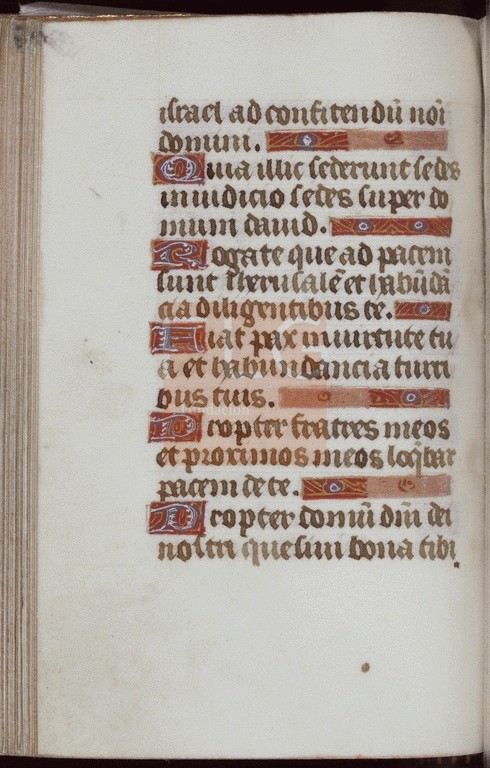 israel ad confitendū nōi
domini.
Quia illic sederunt sedes
in iudicio sedes super do
mum dauid.
Rogate que ad pacem
sunt iherusalē et habūdā
cia diligentibus te.
Fiat pax in uirtute tu
a et habundancia turri
bus tuis.
Propter fratres meos
et proximos meos loq̄bar
pacem de te.
Propter domū dn̄i dei
nostri quesiui bona tibi.
Fundación